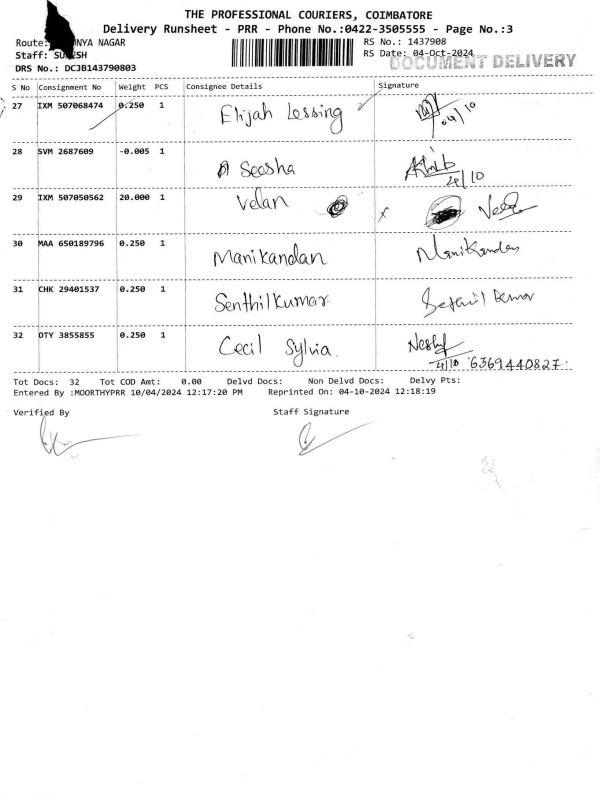 THE PROFESSIONAL COURIERS, COIMBATORE
Delivery Runsheet - PRR - Phone No.:0422-3505555 - Page No.:3
Route: NYA NAGAR
RS No.: 1437908
Staff: SU ESH
RS Date: 04-Oct-2024
DOCUMENT DELIVERY
DRS No.: DCJB143790803
S No Consignment No Weight PCS Consignee Details Signature
27 IXM 507068474 0.250 1 Elijah Lessing 04/10
28 SVM 2687609 -0.005 1 Seesha Akhib 4/10
29 IXM 507050562 20.000 1 Velan x
30 MAA 650189796 0.250 1 Manikandan Manikandan
31 CHK 29401537 0.250 1 Senthilkumar
32 OTY 3855855 0.250 1 Cecil Sylvia. 4/10 6369440827.
Tot Docs: 32 Tot COD Amt: 0.00 Delvd Docs: Non Delvd Docs: Delvy Pts:
Entered By :MOORTHYPRR 10/04/2024 12:17:20 PM Reprinted On: 04-10-2024 12:18:19
Verified By Staff Signature